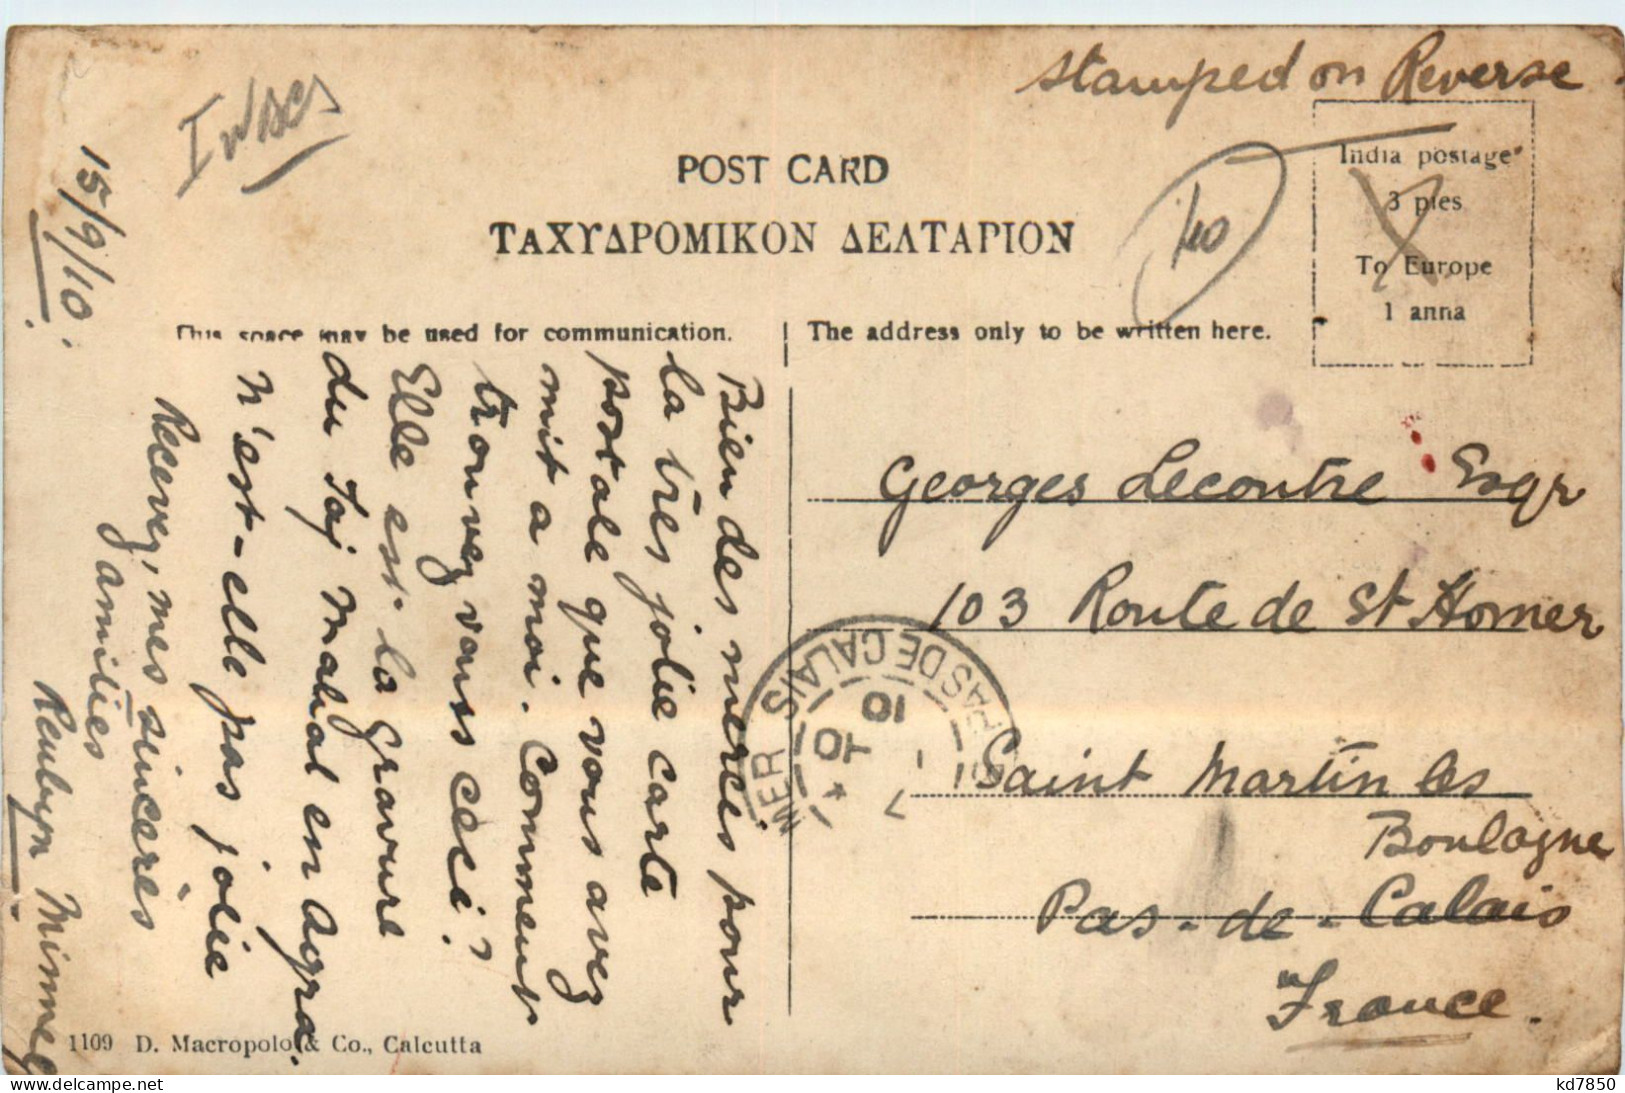 stamped on Reverse.
POST CARD
ΤΑΧΥΔΡΟΜΙΚΟΝ ΔΕΛΤΑΡΙΟΝ
India postage
3 pies
To Europe
1 anna
This space may be used for communication.
The address only to be written here.
15/9/10.
Bien des mercis pour
la très jolie carte
portale que vous avez
mit a moi. Comment
trouvez vous ceci?
Elle est la Gravure
du Taj Mahal en Agra.
N'est-elle pas joliè
Recevez, mes sincerès
amitiès
Minney
Georges Lecontre Esqr
103 Route de St Homer
Saint Martin les
Boulogne
Pas-de-Calais
France.
MER
PAS DE CALAIS
7
10
1109 D. Macropolo & Co., Calcutta
kd7850